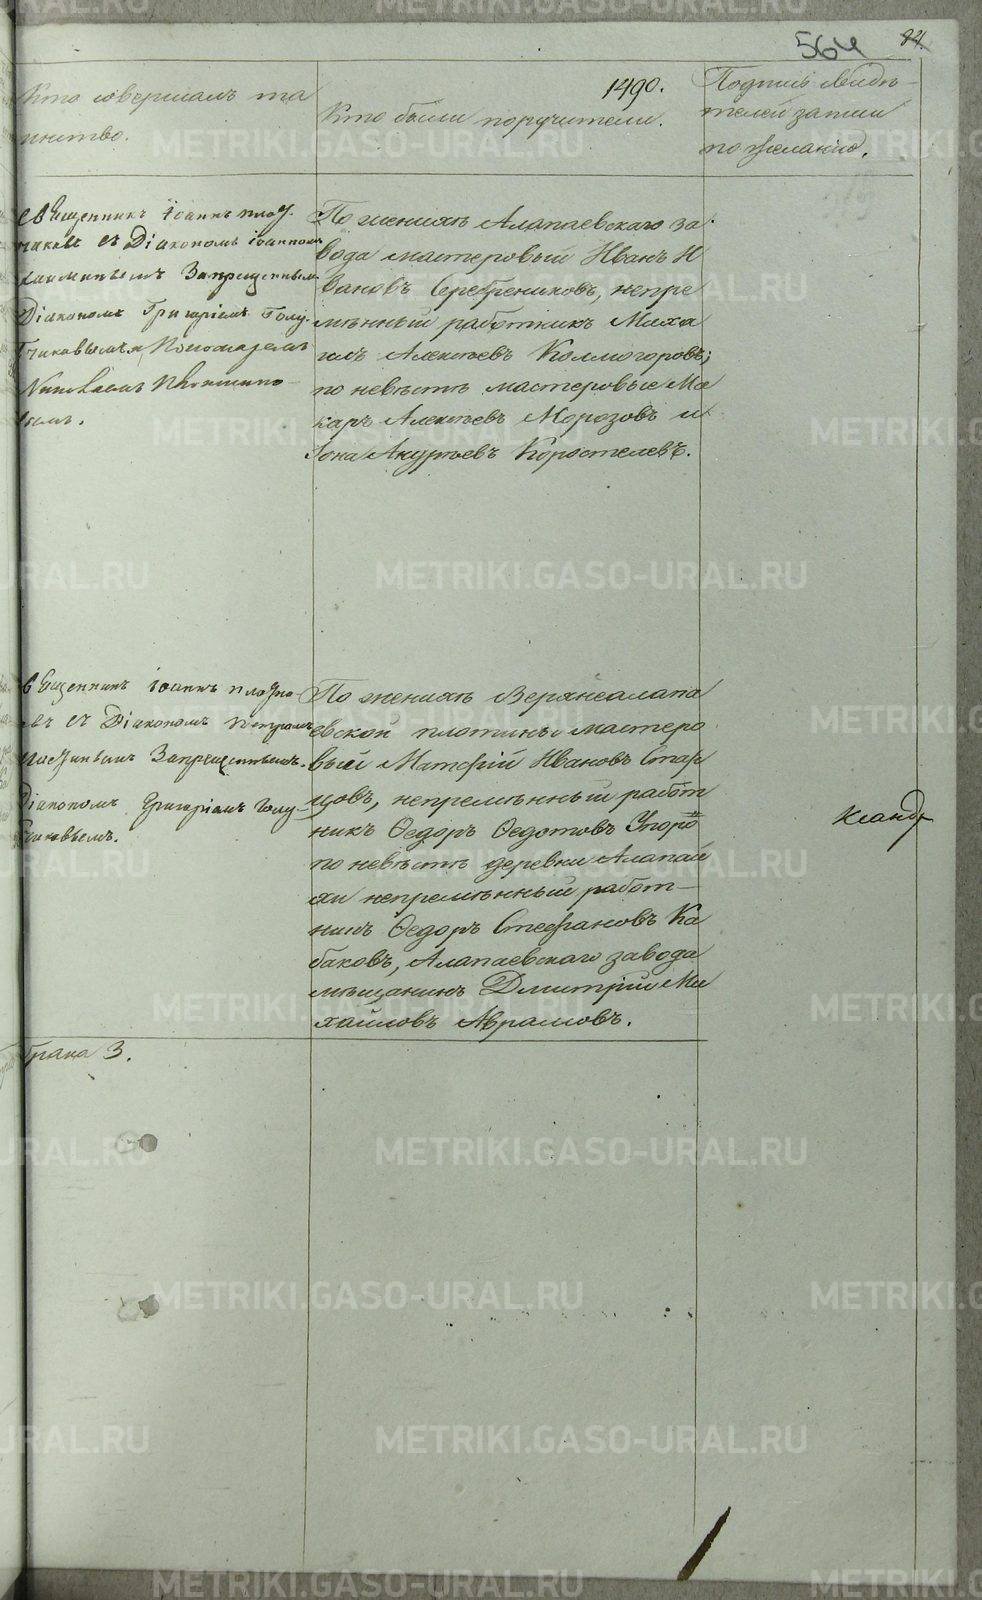 564
84.
1490.
Кто совершалъ та
инство.
Кто были поручители.
Подпись свидѣ
телей записи
по желанію.
Священникъ Іоаннъ
съ Діакономъ Іоанномъ
Запрещеннымъ
Діакономъ Григоріемъ Голу
и Пономаремъ
Николаемъ
вымъ.
По женихѣ Алапаевскаго за
вода мастеровый Иванъ И
вановъ Серебрениковъ, непре
мѣнный работникъ Миха
илъ Алексѣевъ Колмогоровъ;
по невѣстѣ мастеровые Ма
каръ Алексѣевъ Морозовъ и
Іона Акуфьевъ Коростелевъ.
Священникъ Іоаннъ
съ Діакономъ Петромъ
Запрещеннымъ
Діакономъ Григоріемъ Голу
По женихѣ Верхнеалапа
евской плотины мастеро
вый Матфій Ивановъ Стар
цовъ, непремѣнный работ
никъ Ѳедоръ Ѳедотовъ
по невѣстѣ деревни Алапаи
хи непремѣнный работ-
никъ Ѳедоръ Стефановъ Ка
баковъ, Алапаевскаго завода
мѣщанинъ Дмитрій Ми
хайловъ Абрамовъ.
брака 3.
ксанд
METRIKI.GASO-URAL.RU